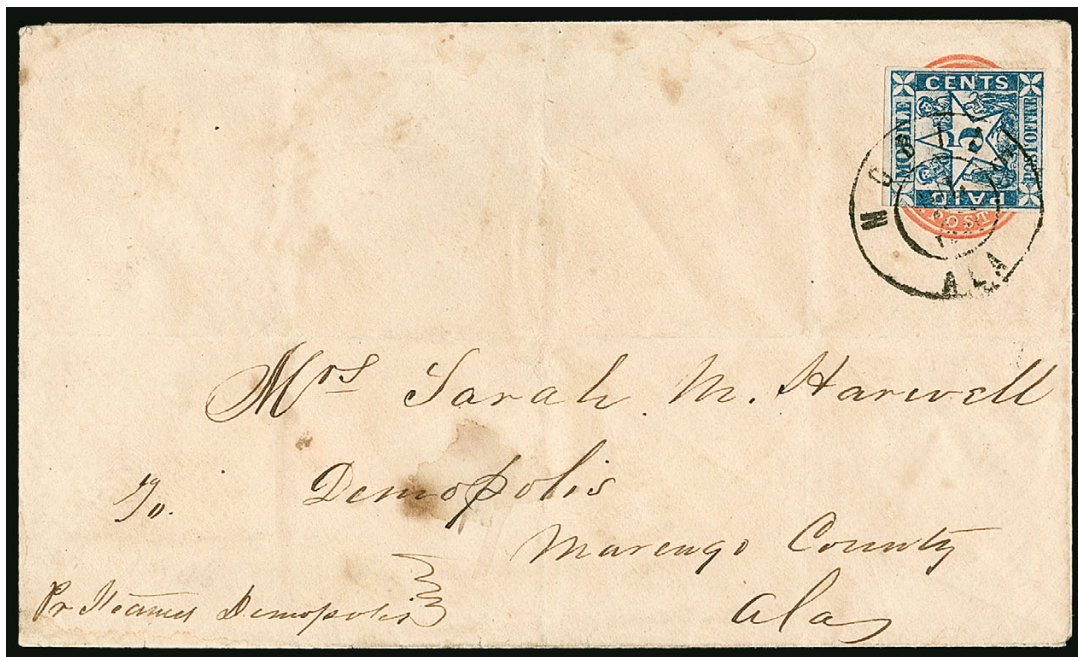 CENTS
MOBILE 5 POST OFFICE
PAID
MOBILE
ALA
Mrs Sarah. M. Harwell
To. Demopolis
Marengo County
Ala
Pr Steamer Demopolis